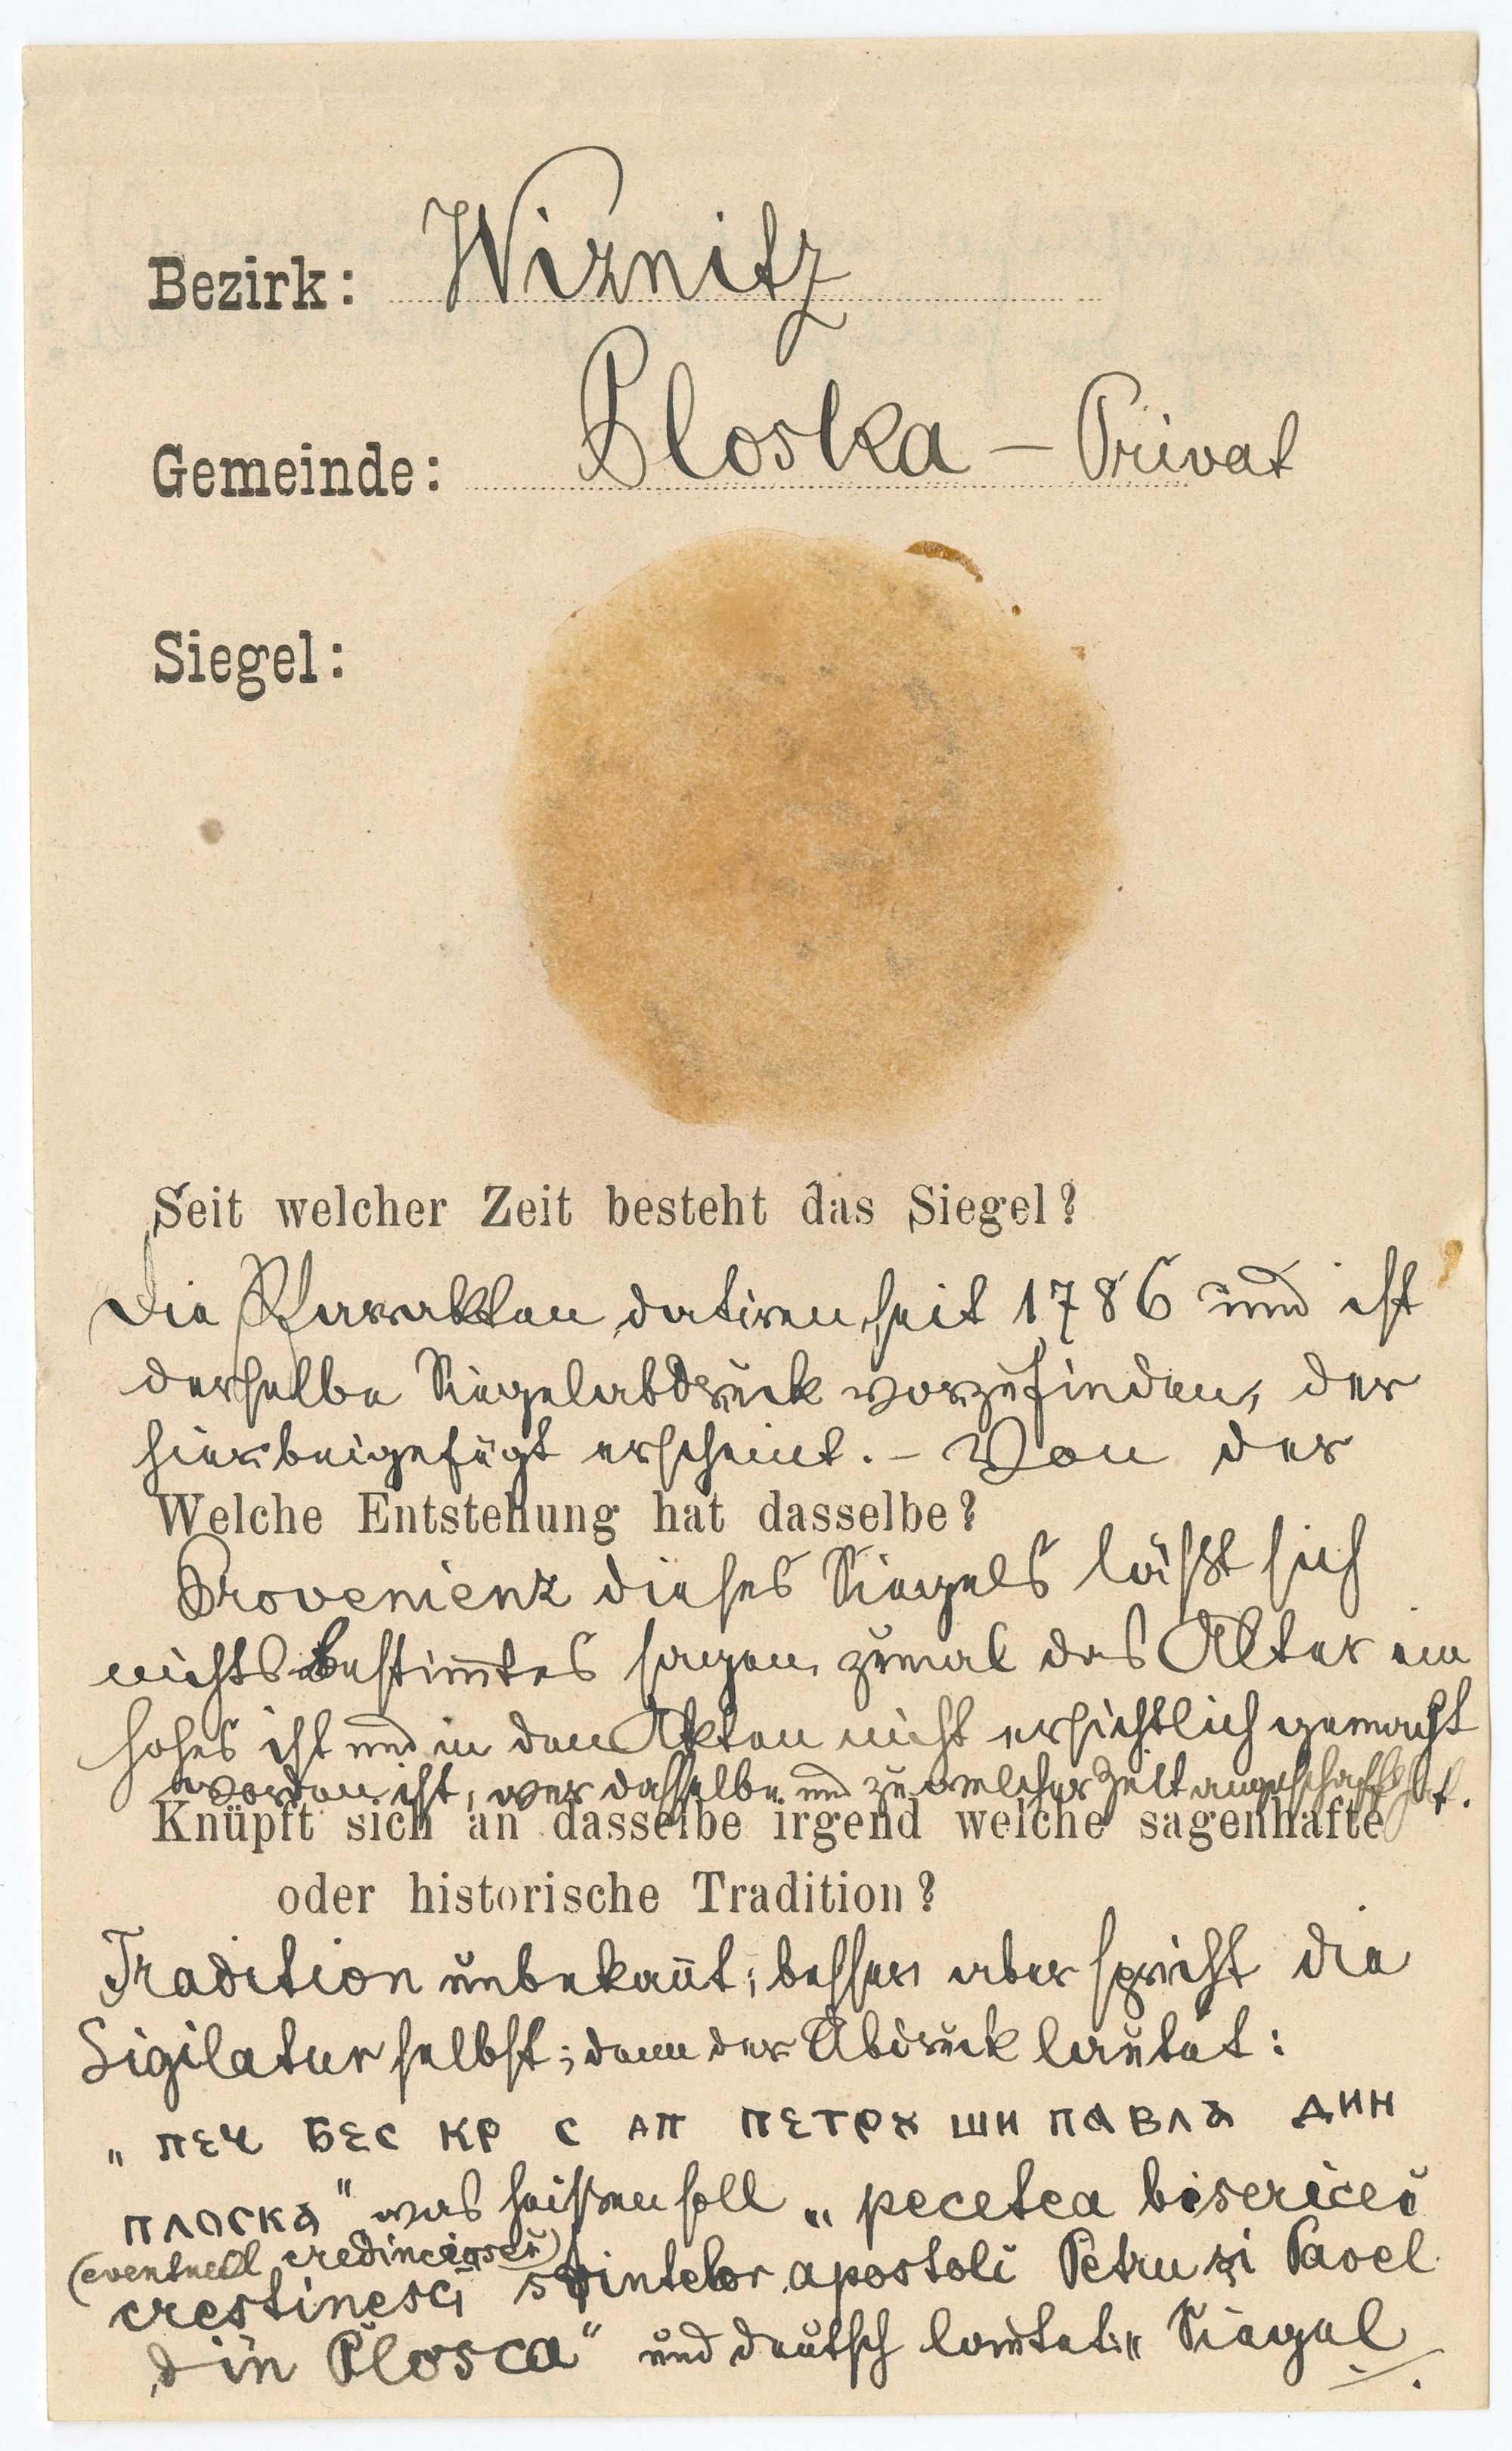 Bezirk: Wiznitz
Gemeinde: Ploska – Privat
Siegel:
Seit welcher Zeit besteht das Siegel?
Die Pfarrakten datiren seit 1786 und ist
derselbe Siegelabdruck vorzufinden, der
hier beigefügt erscheint. – Von der
Welche Entstehung hat dasselbe?
Provenienz dieses Siegels läßt sich
nichts Bestim̅tes sagen, zumal das Alter ein
hohes ist und in den Akten nicht ersichtlich gemacht
worden ist, wer dasselbe und zu welcher Zeit angeschafft hat.
Knüpft sich an dasselbe irgend welche sagenhafte
oder historische Tradition?
Tradition unbekan̅t; besser aber spricht die
Sigilatur selbst; denn der Abdruck lautet:
„ ПЕЧ БЕС КР С АП ПЕТРꙋ ШИ ПАВЛѢ ДИН
ПЛОСКА" was heißen soll „pecetea bisericeĭ
(eventuell credincioseĭ)
crestinesci sfintelor apostoli Petru și Pavel
din Plosca" und deutsch lautet: „Siegel ./.